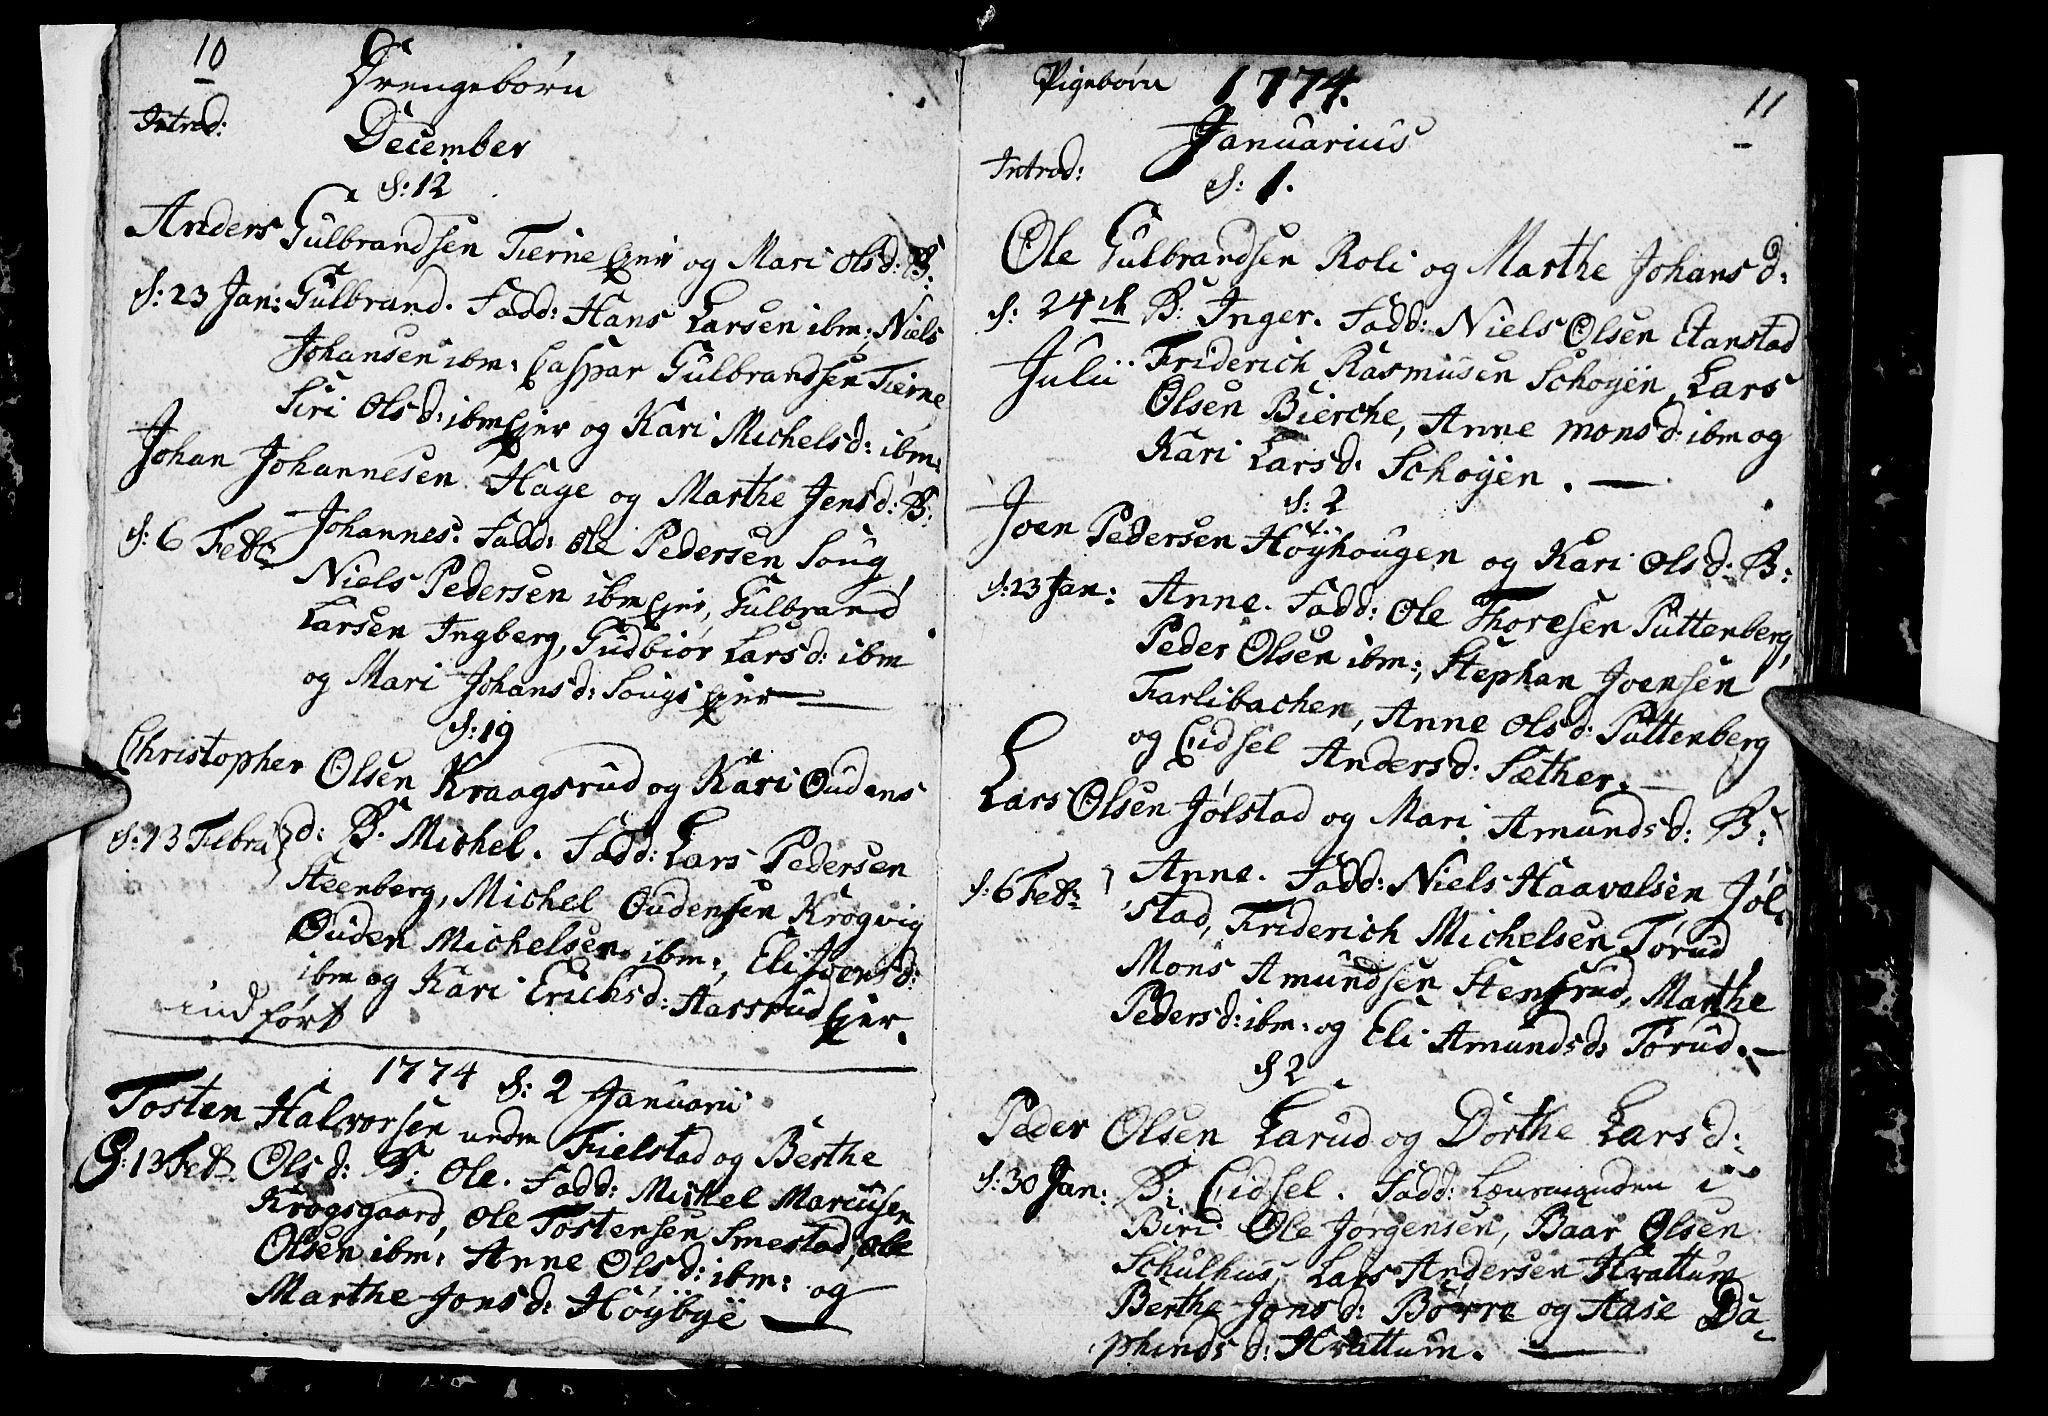 10
Drengebørn
Introd:
December
d: 12
Anders Gulbrandsen Tierne Ejer og Mari Olsd: B:
d: 23 Jan: Gulbrand. Fadd: Hans Larsen ibm, Niels
Johansen ibm: Caspar Gulbrandsen Tierne
Siri Olsd: ibm Ejer og Kari Michelsd: ibm:
Johan Johannesen Hage og Marthe Jensd: B:
d: 6 Febr: Johannes. Fadd: Ole Pedersen Soug,
Niels Pedersen ibm Ejer, Gulbrand
Larsen Ingberg, Gudbiør Larsd: ibm
og Mari Johansd: Sougs Ejer
d: 19
Christopher Olsen Kraagsrud og Kari Oudens
d: 13 Febru d: B. Michel. Fadd: Lars Pedersen
Steenberg, Michel Oudensen Krogvig
Ouden Michelsen ibm:, Eli Joensd:
ibm og Kari Ericksd: Harsrud Ejer.
indført
1774 d: 2 Januarii
Tosten Halvorsen under Fielstad og Berthe
d: 13 Febr. Olsd: B: Ole. Fadd: Michel Marcusen
Krogsgaard, Ole Tostensen Smestad, Ole
Olsen ibm: Anne Olsd: ibm: og
Marthe Jonsd: Höÿbye
Pigebørn 1774.
11
Januarius
Introd:
d: 1.
Ole Gulbrandsen Roli og Marthe Johansd:
d: 24de B: Inger. Fadd: Niels Olsen Etanstad
Julii Friderich Rasmusen Schoÿen, Lars
Olsen Bierche, Anne Monsd: ibm og
Kari Larsd: Schoÿen.
d: 2
Joen Pedersen Höÿhougen og Kari Olsd: B:
d: 23 Jan: Anne. Fadd: Ole Thoresen Puttenberg,
Peder Olsen ibm:, Stephan Joensen
Farlibachen, Anne Olsd: Puttenberg
og Eidsel Andersd: Sæther.
Lars Olsen Jølstad og Mari Amundsd: B:
d: 6 Febr: Anne. Fadd: Niels Haavalsen Jøl-
stad, Friderich Michelsen Tørud
Mons Amundsen Stensrud, Marthe
Pedersd: ibm: og Eli Amundsd: Tørud.
d 2
Peder Olsen Larud og Dorthe Larsd:
d: 30 Jan: B: Eidsel. Fadd: i
Biri Ole Jørgensen, Baar Olsen
Schulhus, Lars Andersen Hvattum
Berthe Jonsd: Børre og Aase Da-
phindsd: Hvattum.